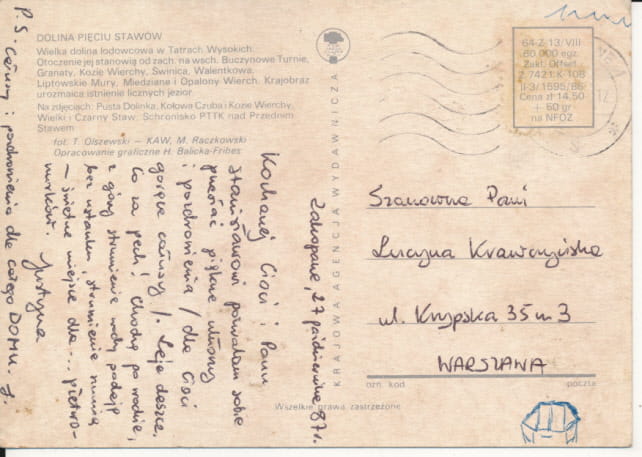 DOLINA PIĘCIU STAWÓW
Wielka dolina lodowcowa w Tatrach Wysokich.
Otoczenie jej stanowią od zach. na wsch. Buczynowe Turnie,
Granaty, Kozie Wierchy, Świnica, Walentkowa,
Liptowskie Mury, Miedziane i Opalony Wierch. Krajobraz
urozmaica istnienie licznych jezior.
Na zdjęciach: Pusta Dolinka, Kołowa Czuba i Kozie Wierchy,
Wielki i Czarny Staw, Schronisko PTTK nad Przednim
Stawem
fot. T. Olszewski — KAW, M. Raczkowski
Opracowanie graficzne H. Balicka-Fribes
Zakopane, 27 październik 87 r.
Kochanej Cioci i Panu
Stanisławowi pozwalam sobie
przesłać piękne ukłony
i pozdrowienia / dla Cioci
gorące całusy /. Leje deszcz.
Co za pech! Chodzę po wodzie,
z góry strumienie wody padają
bez ustanku, strumienie
– świetne miejsce dla... płetwo-
nurków. Justyna
P.S. Całusy i pozdrowienia dla całego DOMU. J.
KRAJOWA AGENCJA WYDAWNICZA
64-Z-13/VIII
60.000 egz.
Zakł. Offset.
Z. 7421.K-108
II-3/1595/86
Cena zł 14,50
+ 50 gr
na NFOZ
Szanowna Pani
Lucyna Krawczyńska
ul. Krypska 35 m 3
WARSZAWA
ozn. kod
poczta
Wszelkie prawa zastrzeżone